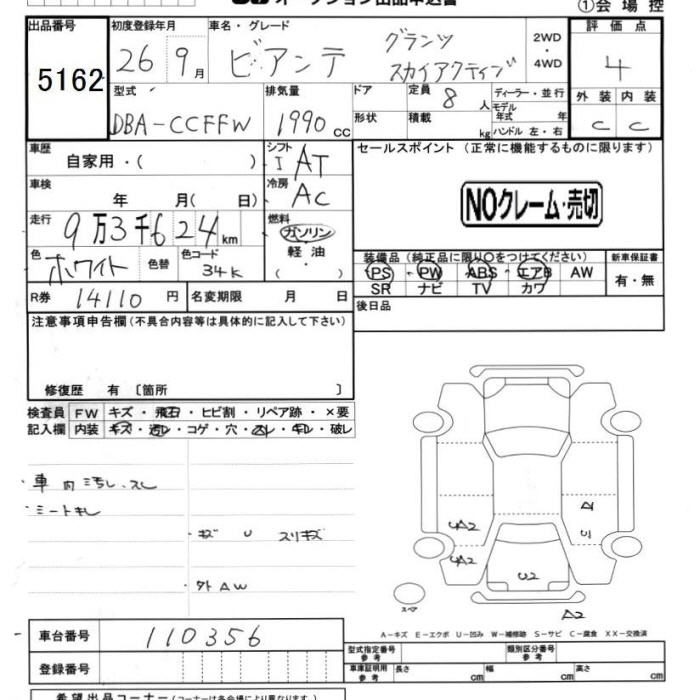 オークション出品申込書 ①会場控
出品番号 5162
初度登録年月 26 9月
車名・グレード ビアンテ グランツ スカイアクティブ
2WD ・ 4WD
評価点 4
外装 内装
C C
型式 DBA-CCFFW
排気量 1990 cc
ドア 形状
定員 8人
積載 kg
ディーラー・並行
モデル年式 年
ハンドル 左・右
車歴 自家用・( )
シフト I AT
車検 年 月(日)
冷房 AC
走行 9万3千624km
燃料 ガソリン・軽油・( )
色 ホワイト 色替 色コード 34K
R券 14110円 名変期限 月 日
セールスポイント (正常に機能するものに限ります)
NOクレーム・売切
装備品 (純正品に限り○をつけてください) 新車保証書
PS PW ABS エアB AW 有・無
SR ナビ TV カワ
後日品
注意事項申告欄(不具合内容等は具体的に記入して下さい)
修復歴 有 〔箇所 〕
検査員 FW キズ・飛石・ヒビ割・リペア跡・×要
記入欄 内装 キズ・汚レ・コゲ・穴・スレ・キレ・破レ
・車内汚レ、スレ
・シートキレ
・キズ U スリキズ
・外AW
UA2
UA2
U2
A2
スペア
A-キズ E-エクボ U-凹み W-補修跡 S-サビ C-腐食 XX-交換済
車台番号 110356
登録番号
型式指定番号 参考 類別区分番号 参考
車庫証明用 参考 長さ cm 幅 cm 高さ cm
希望出品コーナー(コーナーは各会場により異なります)